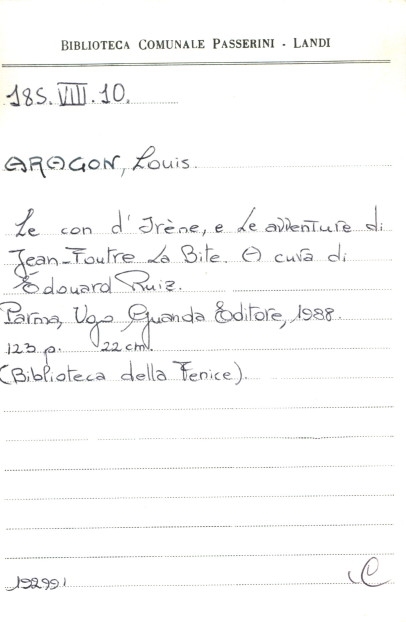 BIBLIOTECA COMUNALE PASSERINI - LANDI
185.VIII.10.
ARAGON, Louis.
Le con d'Irène, e Le avventure di
Jean-Foutre La Bite. A cura di
Édouard Ruiz.
Parma, Ugo Guanda Editore, 1988.
123 p. 22 cm.
(Biblioteca della Fenice).
192991
C